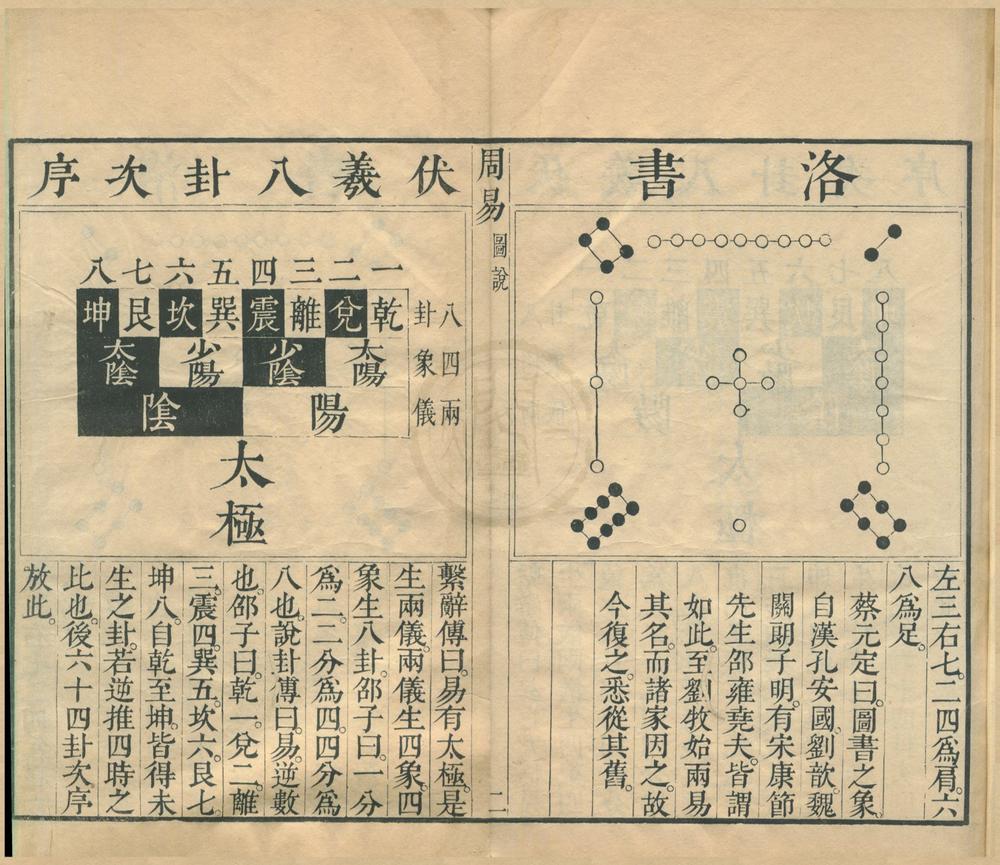 洛書
左三右七二四為肩六
八為足
蔡元定曰圖書之象
自漢孔安國劉歆魏
關朗子明有宋康節
先生邵雍堯夫皆謂
如此至劉牧始兩易
其名而諸家因之故
今復之悉從其舊
周易
圖說
二
伏羲八卦次序
一二三四五六七八
八卦
乾兌離震巽坎艮坤
四象
太陽少陰少陽太陰
兩儀
陽陰
太極
繫辭傳曰易有太極是
生兩儀兩儀生四象四
象生八卦邵子曰一分
為二二分為四四分為
八也說卦傳曰易逆數
也邵子曰乾一兌二離
三震四巽五坎六艮七
坤八自乾至坤皆得未
生之卦若逆推四時之
比也後六十四卦次序
放此